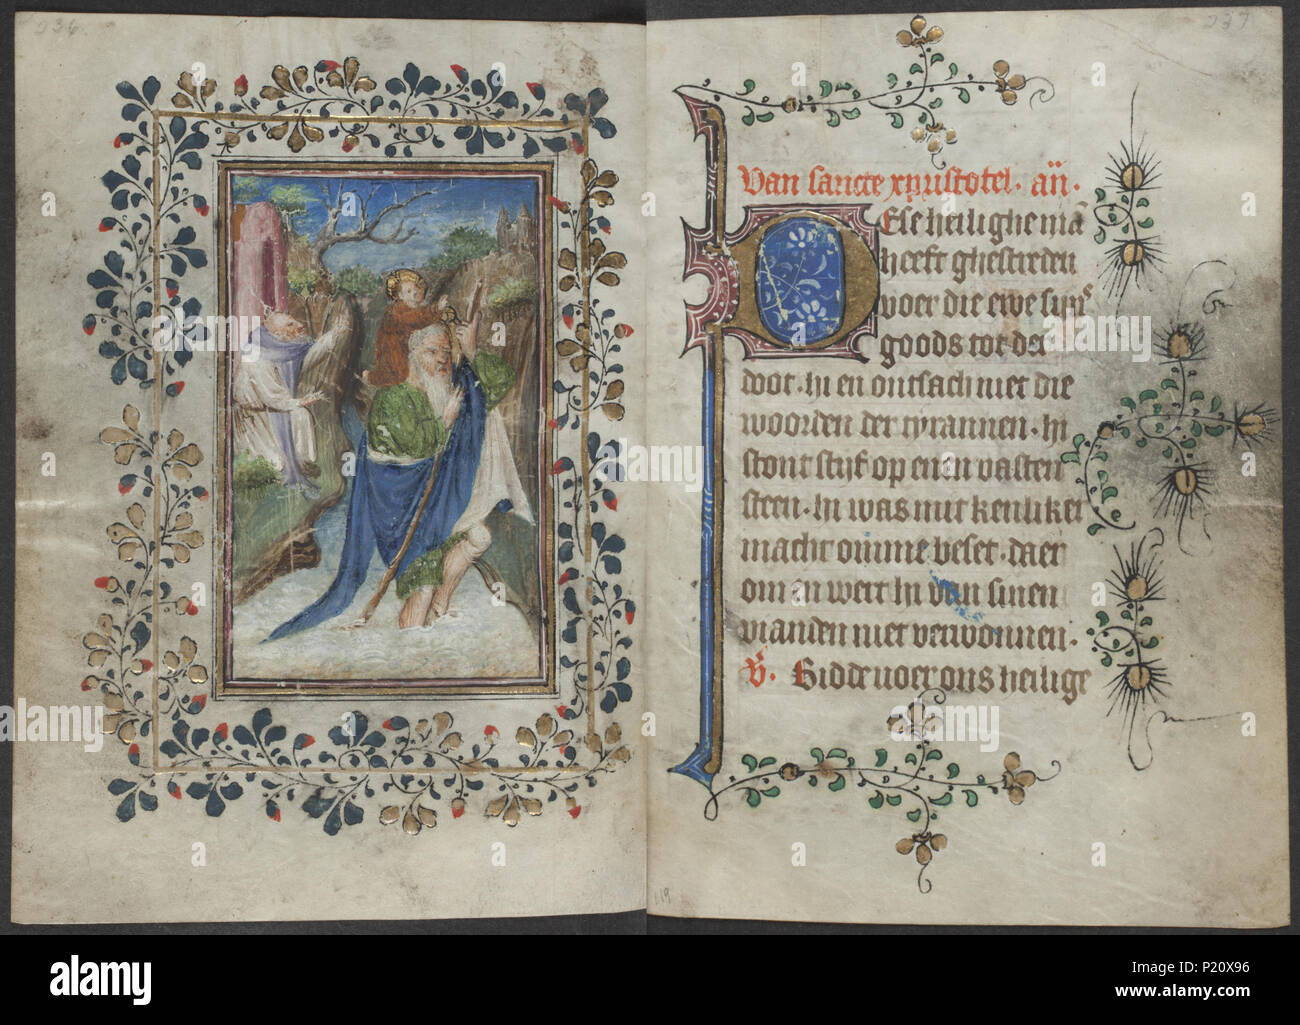 236
237
Van sancte xpristofel. añ.
DEse heilighe mā
heeft ghestreden
voer die ewe sijns
goods tot de
doot. hi en ontsach niet die
woorden der tyrannen. hi
stont stijf op enen vasten
steen. hi was mit kenliker
macht omme beset. daer
om en wert hi van sinen
vianden niet verwonnen.
V. Bidde voer ons heilige
119
alamy
Image ID: P20X96
www.alamy.com